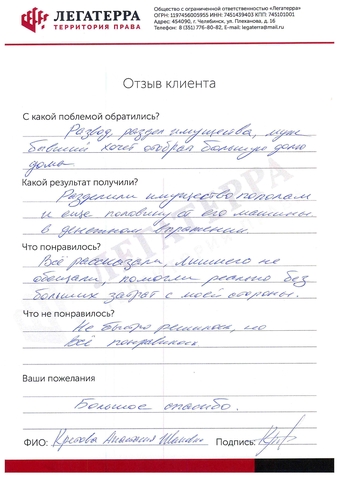 ЛЕГАТЕРРА
ТЕРРИТОРИЯ ПРАВА
Общество с ограниченной ответственностью «Легатерра»
ОГРН: 1197456005955 ИНН: 7451439403 КПП: 745101001
Адрес: 454090, г. Челябинск, ул. Плеханова, д. 16
Телефон: 8 (351) 776-80-82, E-mail: legaterra@mail.ru
Отзыв клиента
С какой поблемой обратились?
Развод, раздел имущества, муж
бывший хочет отобрал большую долю
дома
Какой результат получили?
Разделили имущество пополам
и еще половину от его машины
в денежном выражении.
Что понравилось?
Всё рассказали, лишнего не
обещали, помогли реально без
больших затрат с моей стороны.
Что не понравилось?
Не быстро решилось, но
всё понравилось
Ваши пожелания
Большое спасибо.
ФИО: Анастасия Подпись:
ЛЕГАТЕРРА